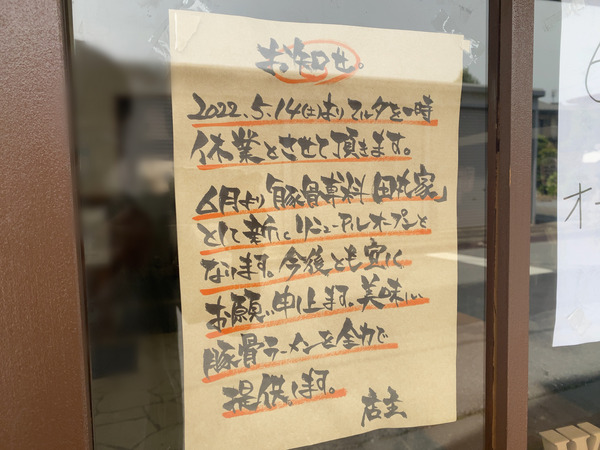 お知せ。
2022.5.14(土)よりマルタを一時
休業とさせて頂きます。
6月より「豚骨専科 田丸家」
として新にリニューアルオープンと
なります。今後とも宜しく
お願い申上ます。美味しい
豚骨ラーメンを全力で
提供します。
店主
オ